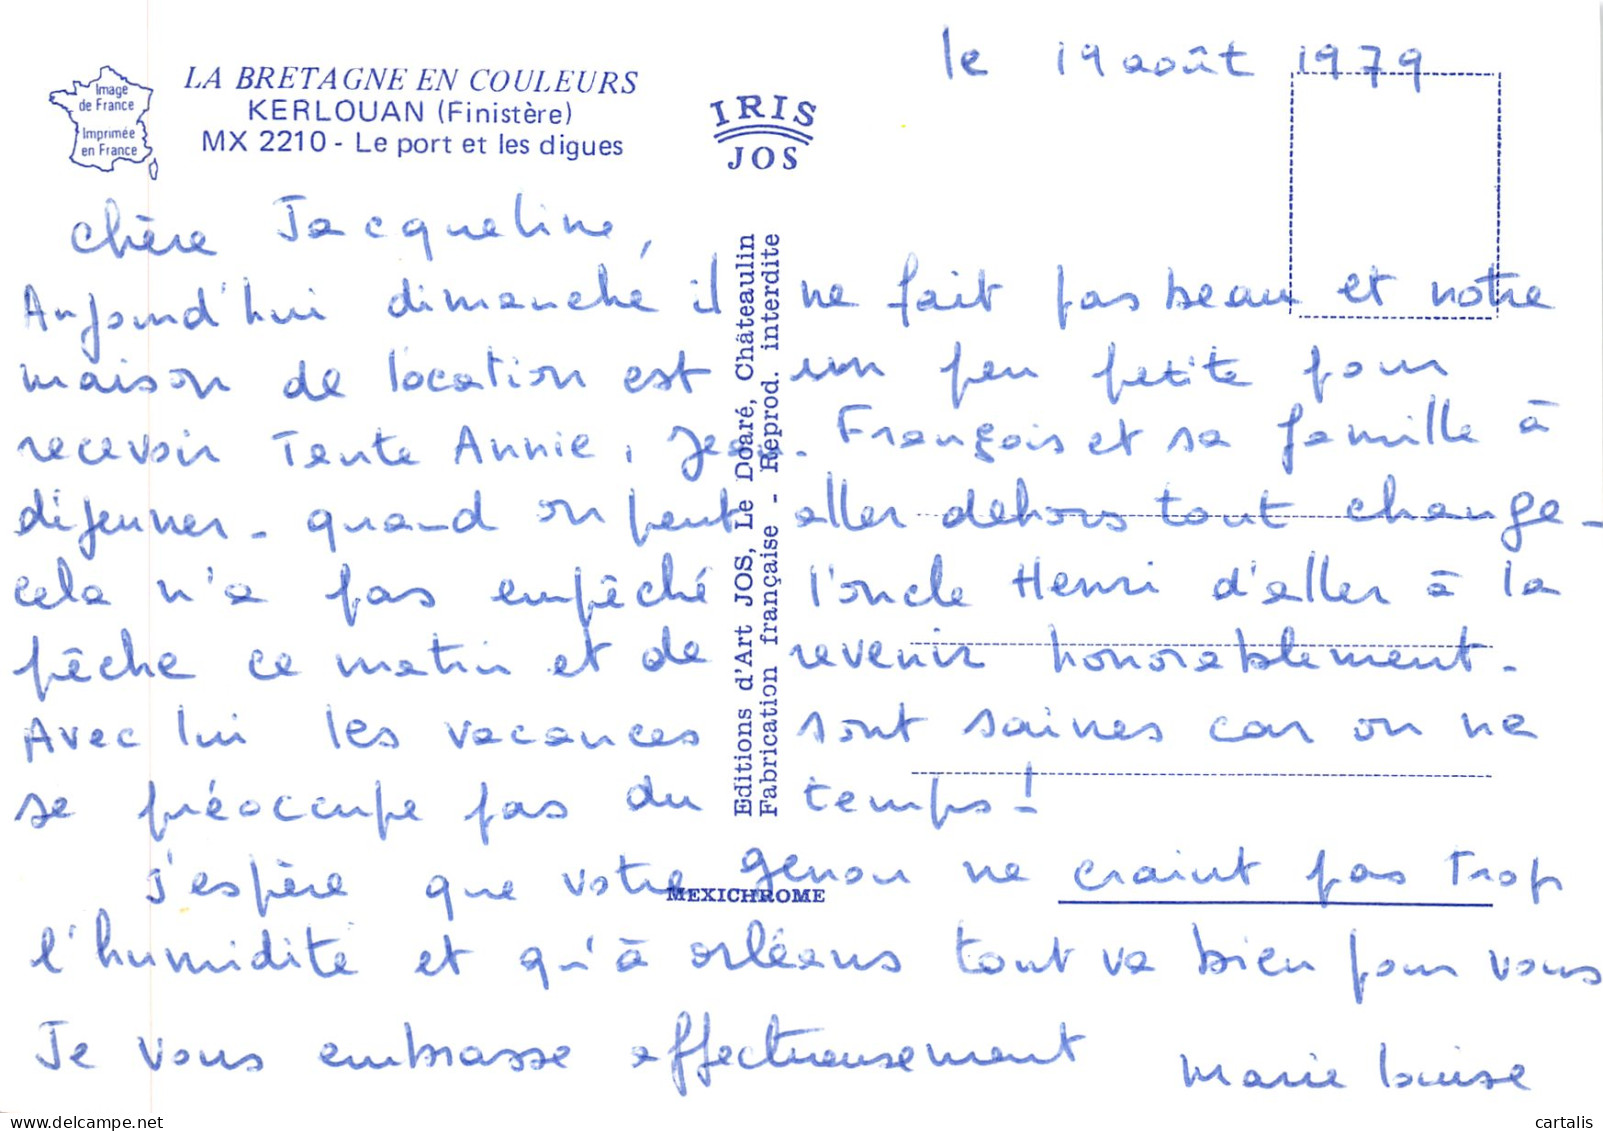 le 19 août 1979
Image
de France
Imprimée
en France
LA BRETAGNE EN COULEURS
KERLOUAN (Finistère)
MX 2210 - Le port et les digues
IRIS
JOS
chère Jacqueline,
Aujourd'hui dimanche il ne fait pas beau et notre
maison de location est un peu petite pour
recevoir Tante Annie, Jean-François et sa famille à
déjeuner - quand on peut aller dehors tout change -
cela n'a pas empêché l'oncle Henri d'aller à la
pêche ce matin et de revenir honorablement -
Avec lui les vacances sont saines car on ne
se préoccupe pas du temps !
J'espère que votre genou ne craint pas trop
l'humidité et qu'à orléans tout va bien pour vous
Je vous embrasse affectueusement Marie Louise
Editions d'Art JOS, Le Doaré, Châteaulin
Fabrication française - Reprod. interdite
MEXICHROME
cartalis